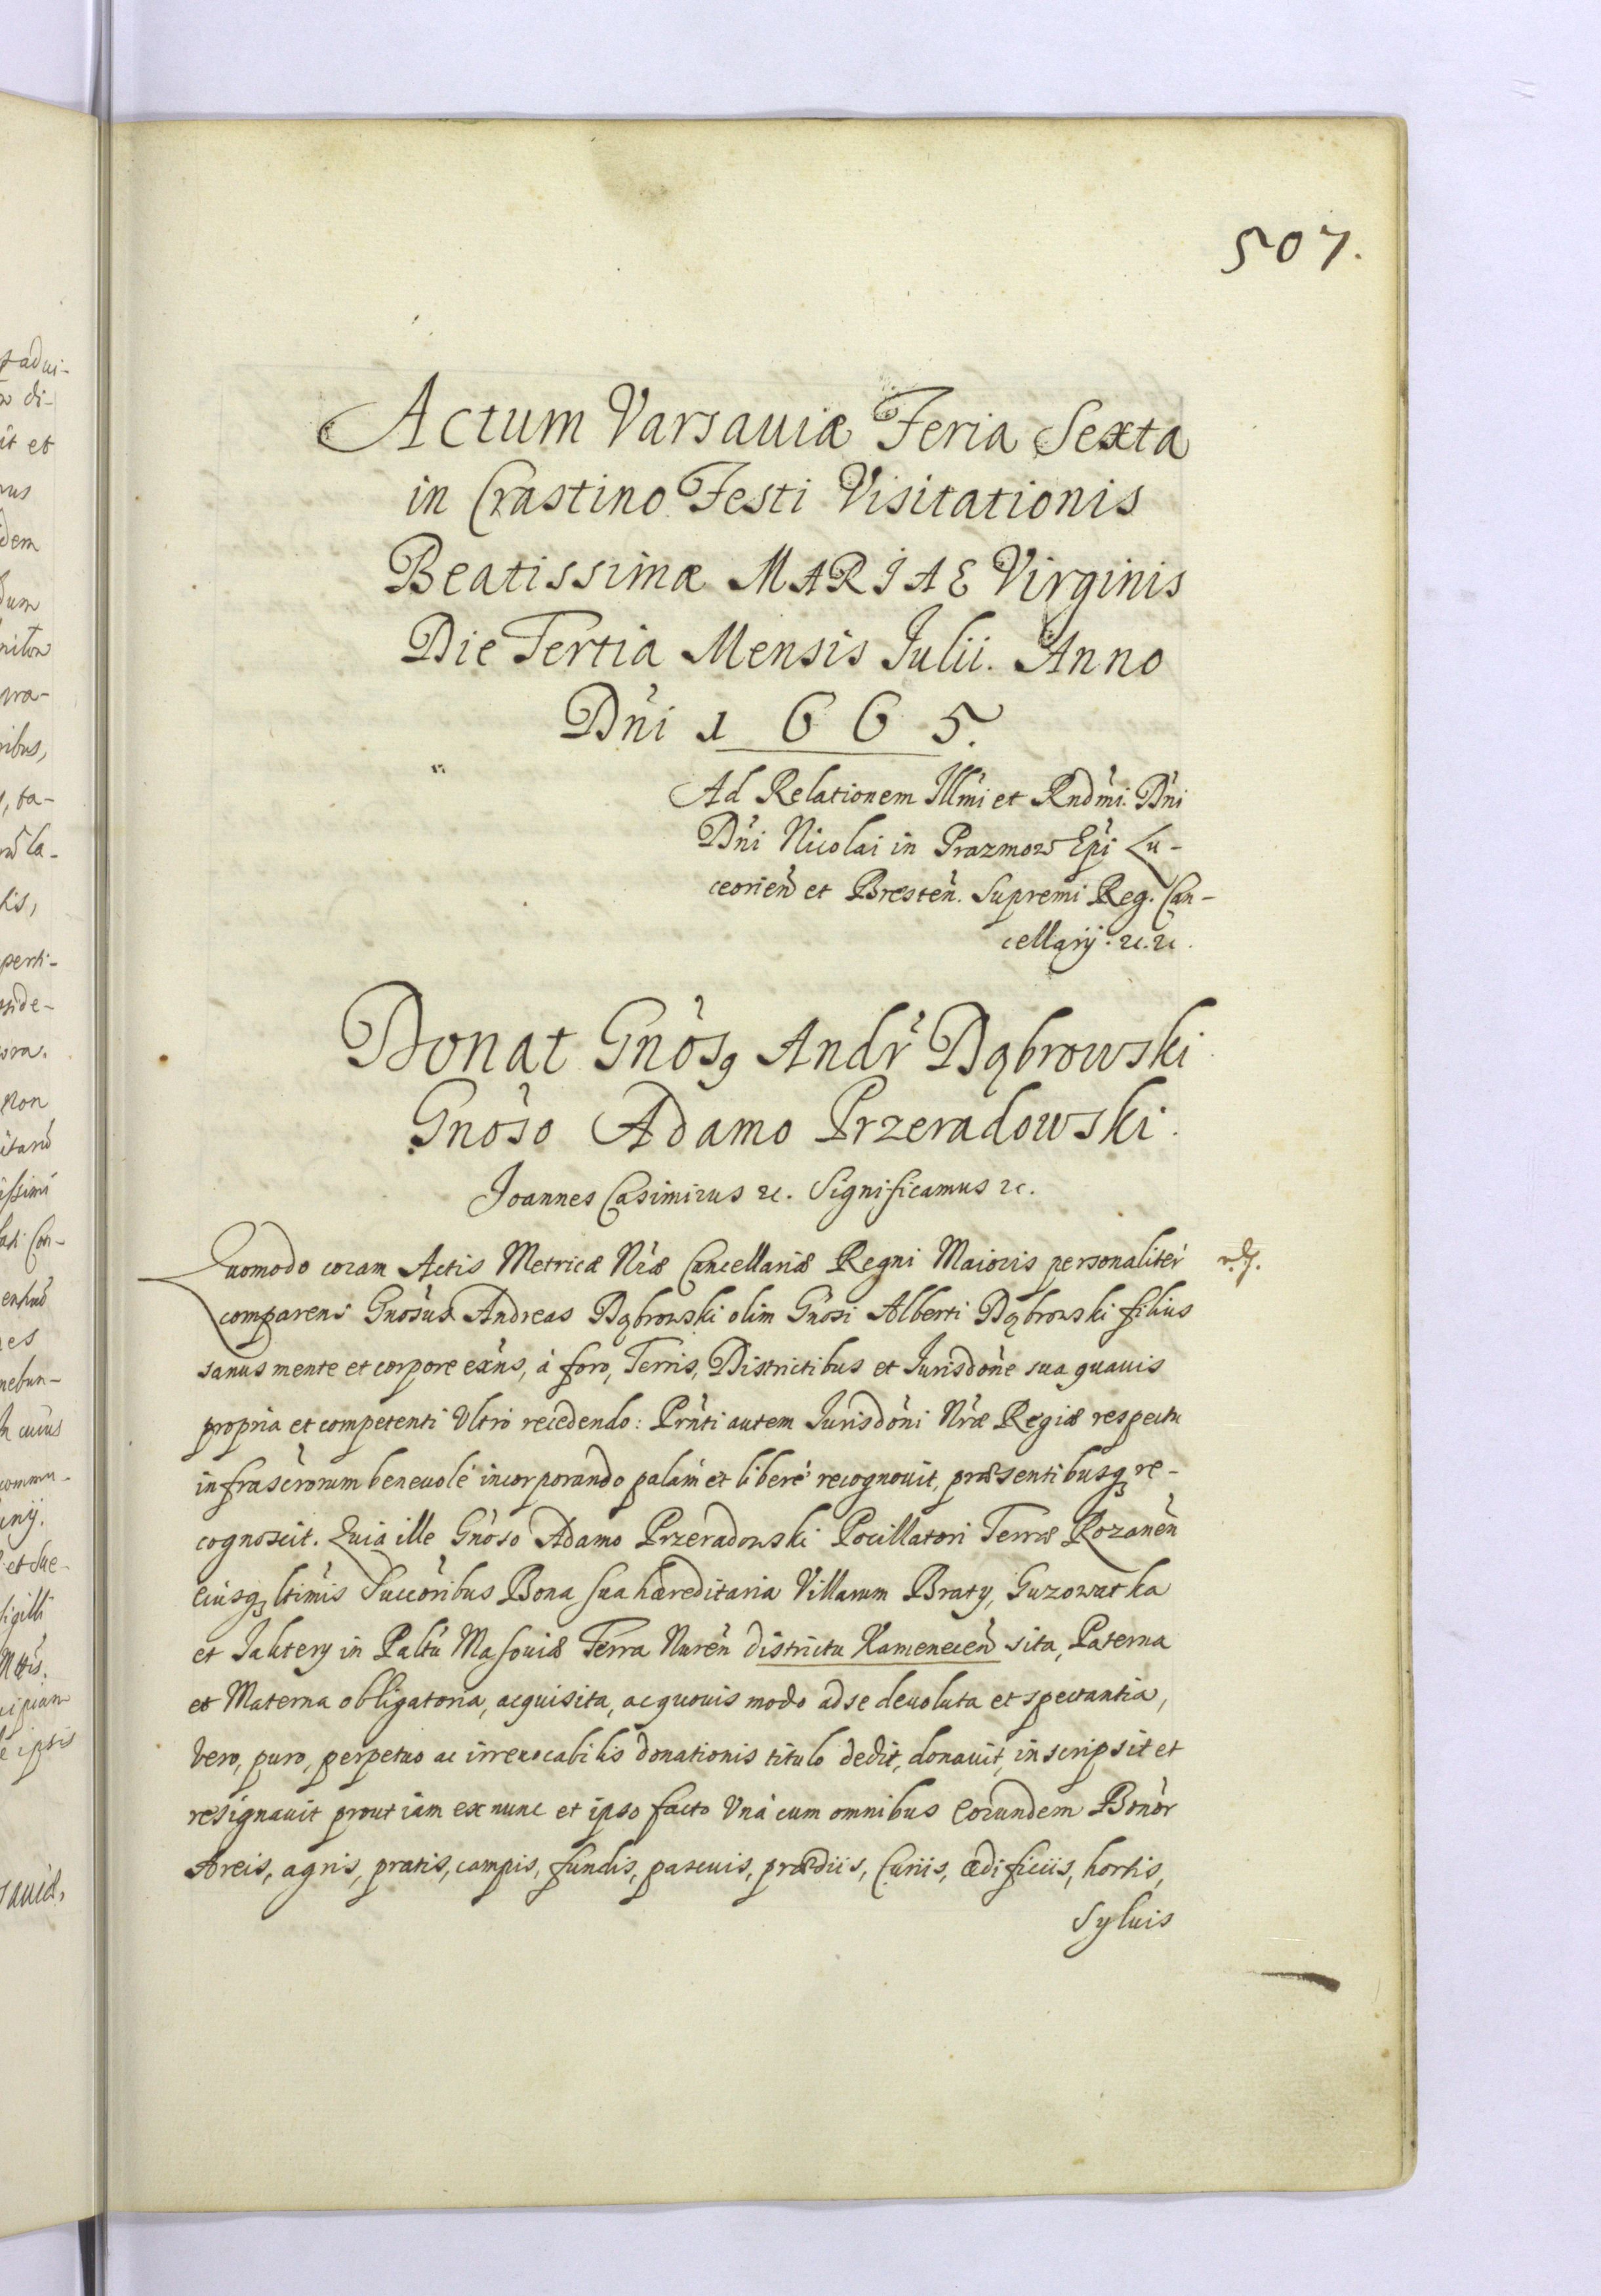 507.
Actum Varsaviæ Feria Sexta
in Crastino Festi Visitationis
Beatissimæ MARIAE Virginis
Die Tertia Mensis Julii. Anno
Dni 1665.
Ad Relationem Illmi et Rndmi Dni
Dni Nicolai in Prazmow Epi Lu-
ceorien et Bresten. Supremi Reg. Can-
cellarij. &c. &c.
Donat Gnosq Andr Dąbrowski
Gnoso Adamo Przeradowski.
Joannes Casimirus &c. Significamus &c.
Quomodo coram Actis Metricæ Nræ Cancellariæ Regni Maioris personaliter
comparens Gnosus Andreas Dąbrowski olim Gnosi Alberti Dąbrowski filius
sanus mente et corpore exns, à foro, Terris, Districtibus et Jurisdone sua quavis
propria et competenti Vltro recedendo: Prnti autem Jurisdoni Nræ Regiæ respectu
infrascrorum beneuole incorporando palam et libere recognouit, præsentibusq re-
cognoscit. Quia ille Gnoso Adamo Przeradowski Pocillatori Terræ Rozanen
eiusq ltimis Succoribus Bona sua hæreditaria Villarum Braty, Guzowatka
et Jaktery in Paltu Masouiæ Terra Nuren districtu Kamenecen sita, Paterna
et Materna obligatoria, acquisita, ac quouis modo ad se deuoluta et spectantia,
vero, puro, perpetuo ac irreuocabilis donationis titulo dedit, donauit, inscripsit et
resignauit prout iam ex nunc et ipso facto Vnà cum omnibus eorundem Bonor
Areis, agris, pratis, campis, fundis, pascuis, prædiis, Curiis, ædificiis, hortis,
Syluis